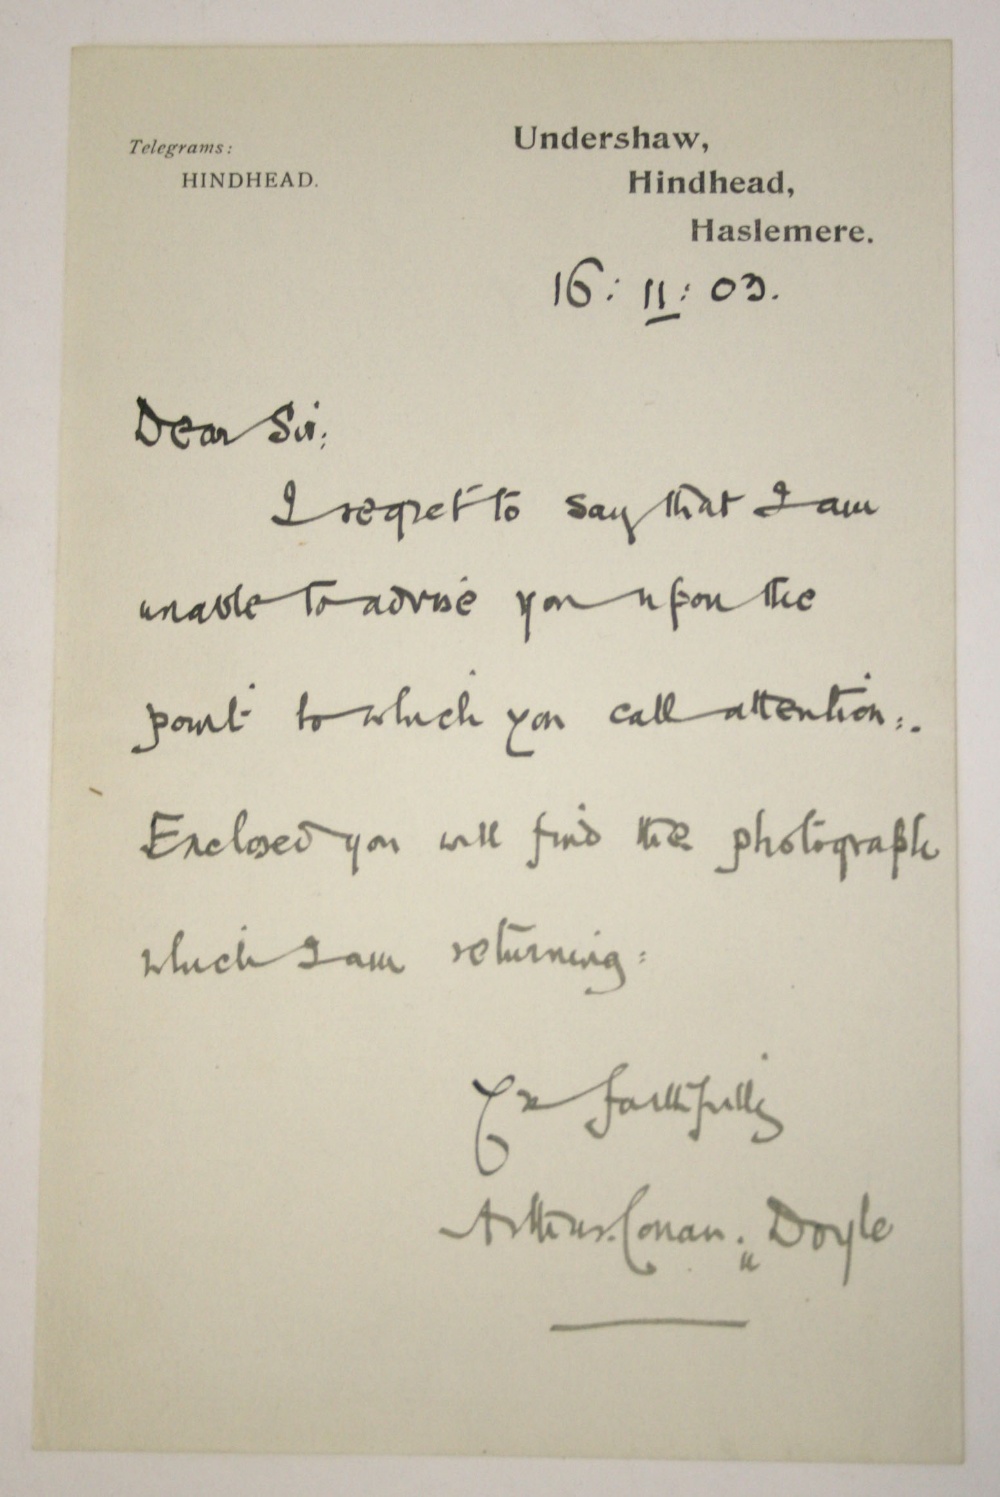 Telegrams:
HINDHEAD.
Undershaw,
Hindhead,
Haslemere.
16: 11: 03.
Dear Sir;
I regret to say that I am
unable to advise you upon the
point to which you call attention:.
Enclosed you will find the photograph
which I am returning:
Yrs faithfully
Arthur. Conan. Doyle